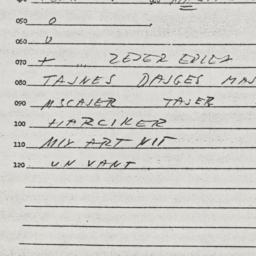 050 O
060 U
070 +
080 TAJNES DAJGES MAJ
090 MSCAJER TAJER
100 HARCIKER
110 MIX ART NIT
120 UN VANT